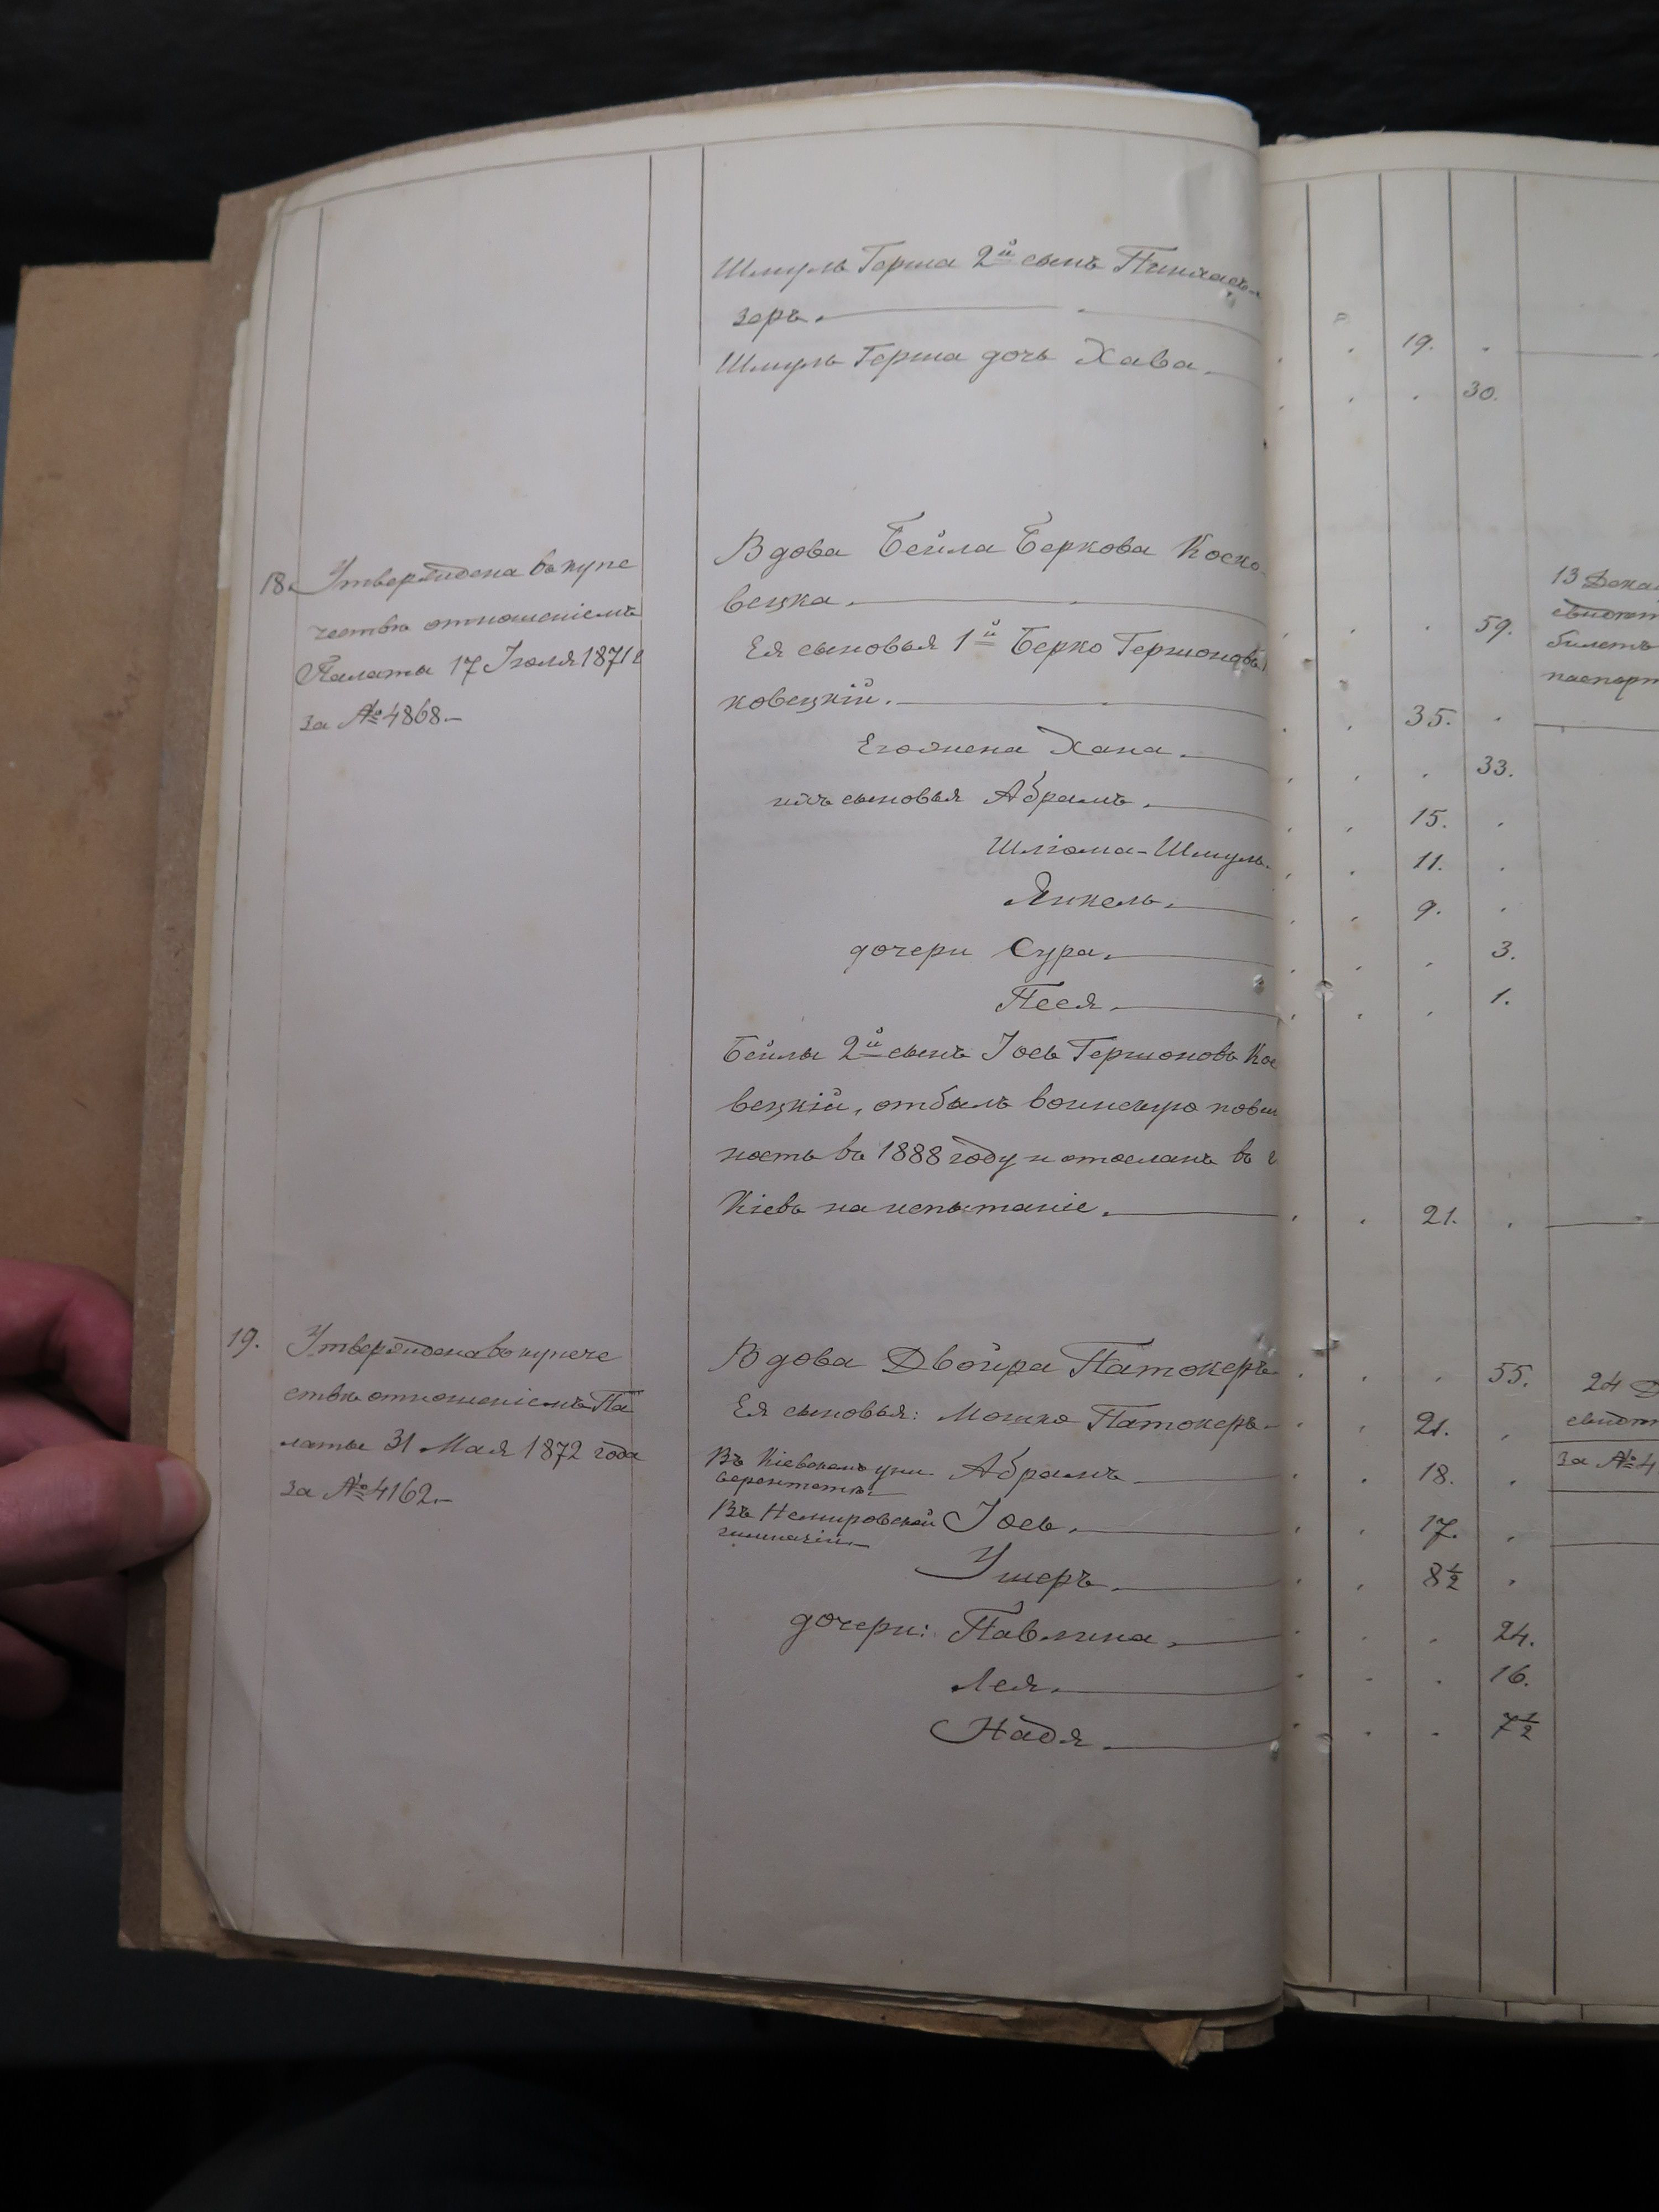 Шмуль Герша 2й сынъ Пинхасъ-
зеръ. 19.
Шмуль Герша дочь Хава. 30.
18. Утверждена въ купе
чество отношеніемъ
Палаты 17 Іюля 1871 г
за № 4868.
Вдова Бейла Беркова Коско-
вецка. 59.
Ея сыновья 1й Берко Гершоновъ
ковецкій. 35.
Его жена Хана. 33.
ихъ сыновья Абрамъ. 15.
Шліома-Шмуль. 11.
Янкель. 9.
дочери Сура. 3.
Песя. 1.
Бейлы 2й сынъ Іось Гершоновъ Кос
вецкій, отбылъ воинскую повин
ность въ 1888 году и отосланъ въ г
Кіевъ на испытаніе. 21.
13 Дека
свидѣт
билетъ
паспорт
19. Утверждена въ купече
ство отношеніемъ Па
латы 31 Мая 1872 года
за № 4162.
Вдова Двойра Патокеръ 55.
Ея сыновья: Мошко Патокеръ 21.
Въ Кіевскомъ уни
верситетѣ. Абрамъ 18.
Въ Немировской
гимназіи Іось. 17.
Ушеръ. 8½
дочери: Павлина. 24.
Лея. 16.
Надя. 7½
24 Д
свидѣт
за № 4